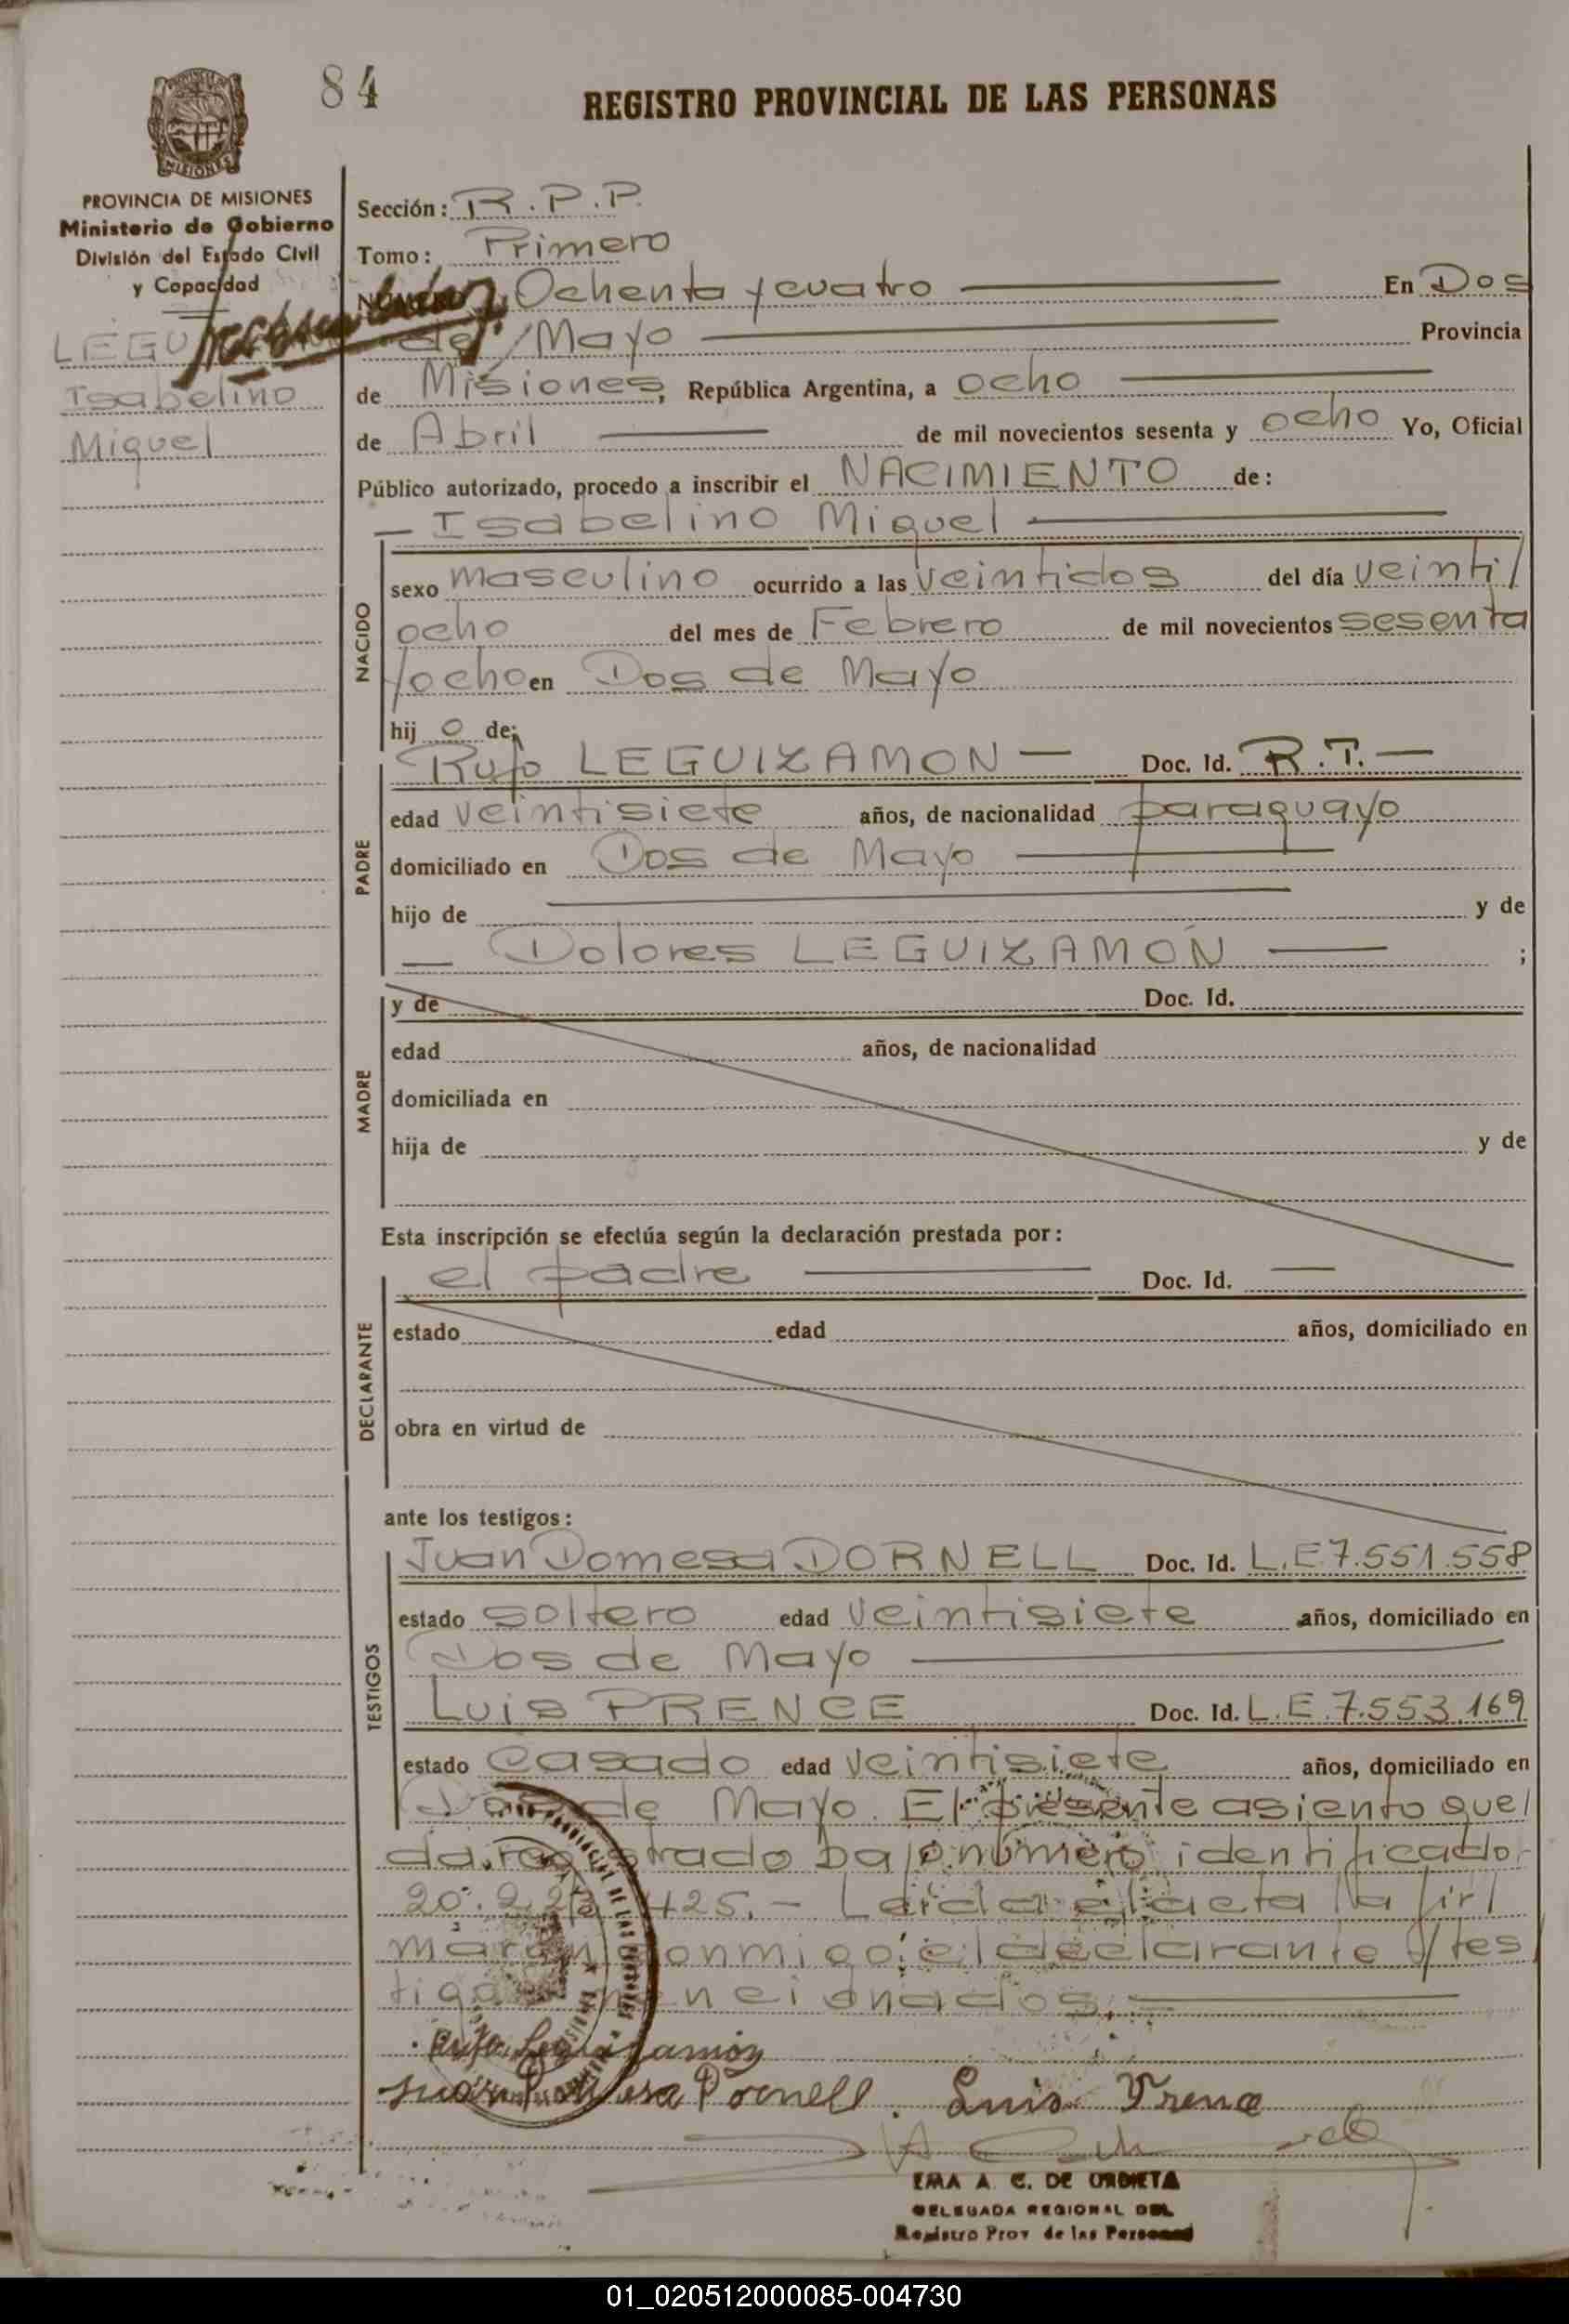 84
REGISTRO PROVINCIAL DE LAS PERSONAS
MISIONES
PROVINCIA DE MISIONES
Ministerio de Gobierno
División del Estado Civil
y Capacidad
LEGU
Isabelino
Miguel
Sección: R.P.P.
Tomo: Primero
NÚMERO Ochenta y cuatro En Dos
de Mayo Provincia
de Misiones, República Argentina, a ocho
de Abril de mil novecientos sesenta y ocho Yo, Oficial
Público autorizado, procedo a inscribir el NACIMIENTO de:
Isabelino Miguel
NACIDO
sexo masculino ocurrido a las veintidos del día veinti/
ocho del mes de Febrero de mil novecientos sesenta
yocho en Dos de Mayo
hij o de:
PADRE
Rufo LEGUIZAMON — Doc. Id. R.T. —
edad veintisiete años, de nacionalidad paraguayo
domiciliado en Dos de Mayo
hijo de y de
— Dolores LEGUIZAMÓN — ;
MADRE
y de Doc. Id.
edad años, de nacionalidad
domiciliada en
hija de y de
Esta inscripción se efectúa según la declaración prestada por:
DECLARANTE
el padre Doc. Id. —
estado edad años, domiciliado en
obra en virtud de
ante los testigos:
TESTIGOS
Juan Domesa DORNELL Doc. Id. L.E 7.551.558
estado soltero edad veintisiete años, domiciliado en
Dos de Mayo
Luis PRENCE Doc. Id. L.E. 7.553.169
estado casado edad veintisiete años, domiciliado en
Dos de Mayo. El presente asiento que/
da registrado bajo número identificado
20.2 425.- Leida el acta la fir/
maran conmigo el declarante y tes
tigos mencionados.-
Rufo Leguizamón
Juan Domesa Dornell. Luis Prence
EMA A. C. DE URDIETA
DELEGADA REGIONAL DEL
Registro Prov de las Personas
01_020512000085-004730